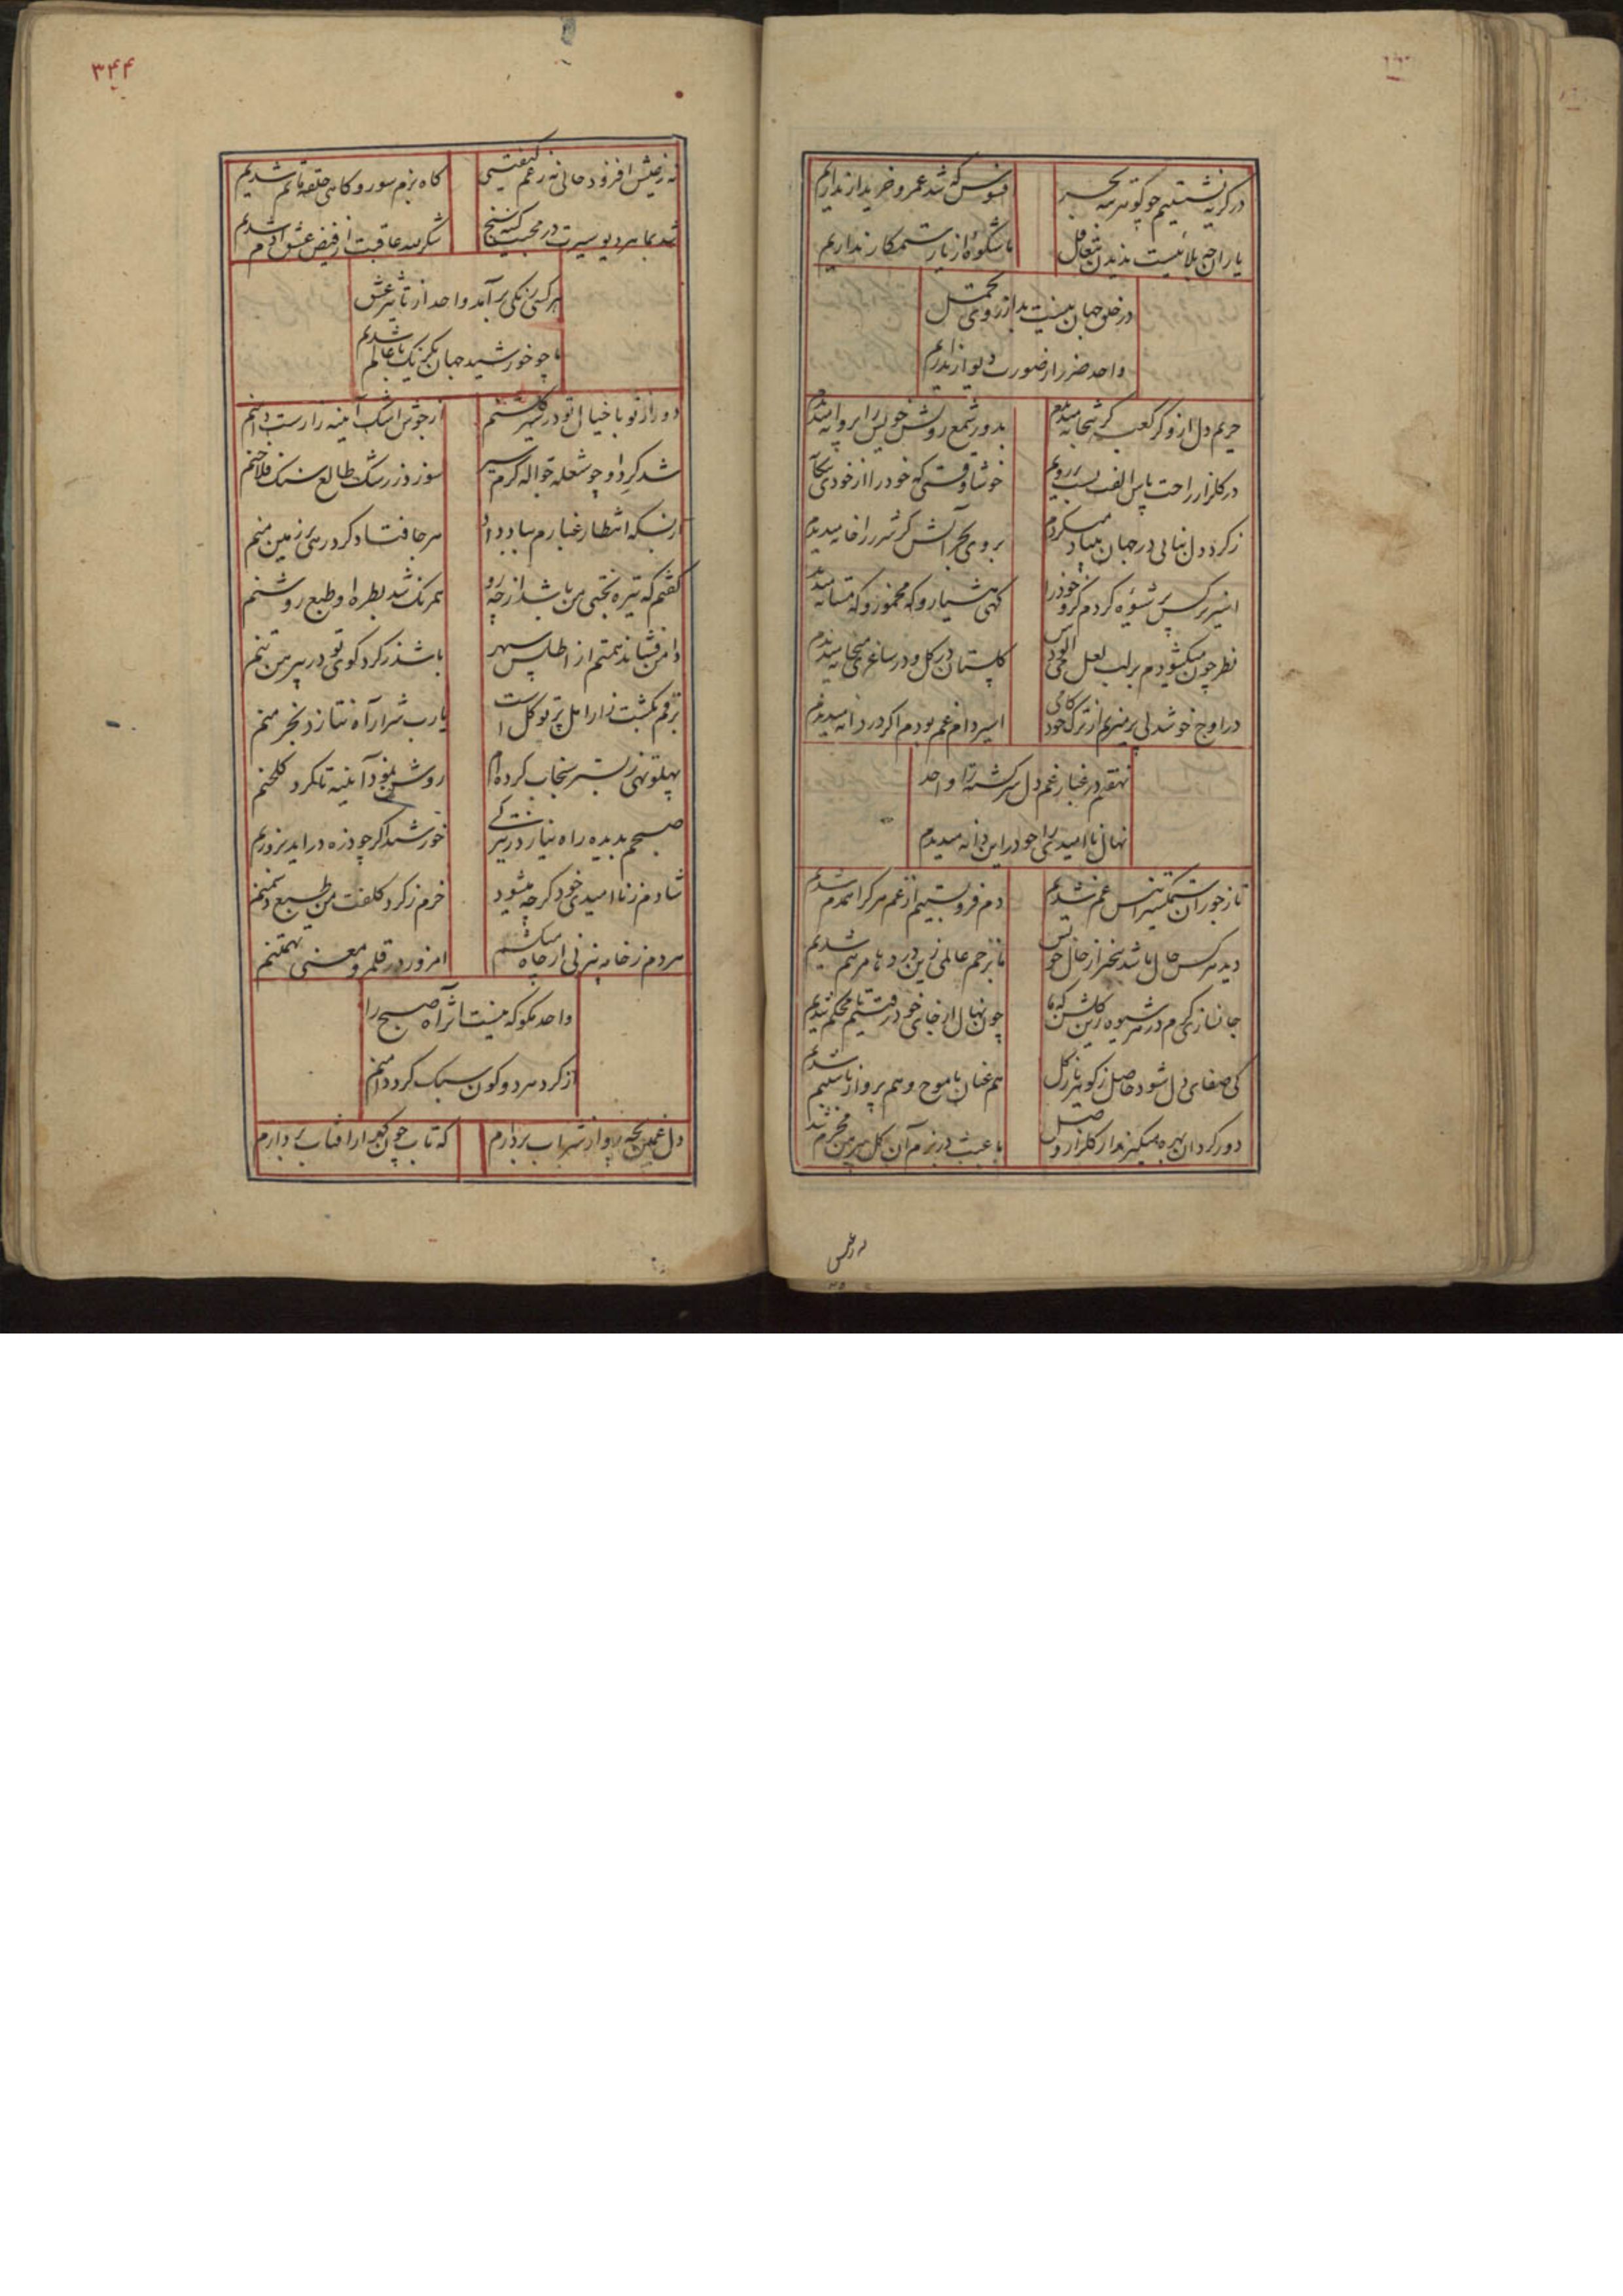 در گریه نشستیم چو گوهر همه
افسوس که شد عمر و خریدار نداریم
یاران چه بلائیست ندیدن تغافل
ما شکوه از یار ستمکار نداریم
در خلق جهان نیست بد از روی تحمل
واحد ضرر از صورت دیوار نداریم
حریم دل از و گر کعبه گر بتخانه میدیدم
بدور شمع رویش خویش را پروانه میدیدم
در گلزار راحت
خوشا وقتی که خود را از خودی بیگانه میدیدم
ز گرد دل بنائی در جهان بنیاد میکردم
بروی بحر آتش گر شرر را خانه میدیدم
اسیر نرگس پر شیوه کردم خود را
گهی هشیار و گه مخمور و گه مستانه میدیدم
نظر چون میگشودم بر لب لعل می آلودش
گلستان در گل و در ساغری میخانه میدیدم
در اوج خوشدلی پر میزدم از ترک کام خود
اسیر دام غم بودم اگر در دانه میدیدم
نهفتم در غبار غم دل سرگشته را واحد
نهال ناامیدی را چو در این دانه میدیدم
تا ز جور آن ستمگر انس غم شدیم
دم فرو بستیم از غم هر کرا همدم شدیم
دید هر کس حال ما شد بیخبر از حال خویش
ما بزخم عالمی زین درد ها مرهم شدیم
جانسازی گرم در هر شیوه زین گلشن که ما
چون نهال از جای خود رفتیم تا محکم شدیم
کی صفای دل شود حاصل ز گوهر
هم عنان با موج و هم پرواز با شبنم شدیم
دور گردان بهره میگیرند از گلزار وصل
ما عبث در بزم آن گل پیرهن محرم شدیم
نه ز عیش
۳۴۴
نه ز عیش افزود حالی نه ز غم کیفیتی
گاه بزم سور و گاهی حلقه ماتم شدیم
شد بما هر دیو سیرت در محبت کینه سنج
شکر لله عاقبت از فیض عشق آدم شدیم
هر کسی رنگی برآمد واحد از تاثیر عشق
ما چو خورشید جهان یکرنگ با عالم شدیم
دور از تو با خیال تو در سیر گلشنم
از جوش اشک آینه زارست دامنم
شد گرد او چو شعله جواله گرم سیر
سوزد ز رشک طالع سنگ فلاخنم
از بسکه انتظار غبارم بباد داد
هر جا فتاد گرد رهی بر زمین منم
گفتم که تیره بختی من باشد از چه رو
همرنگ شد بطره او طبع روشنم
دامن فشاند همتم از اطلس سپهر
باشد ز گرد کوی تو در پیرهن تنم
برقم بکشت زار امل پرتو گل است
یارب شرار آه نتازد بخرمنم
پهلو تهی ز بستر سنجاب کرده ام
روشن نمود آینه تا گرد گلخنم
صبحم بدیده راه نیاز در تیرگی
خورشید اگر چو ذره درآید بروزنم
شادم ز ناامیدی خود گرچه میشود
خرم ز گرد کلفت من طبع دشمنم
هر دم ز خامه بیژنی از چاه میکشم
امروز در قلمرو معنی تهمتنم
واحد مگو که نیست اثر آه صبح را
از گرد هر دو کون سبک کرد دامنم
دل غمگین چه پروا از شراب بردارم
که تاب چون گهر از آفتاب بردارم